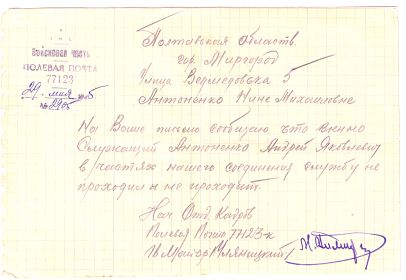 ВОЙСКОВАЯ ЧАСТЬ
ПОЛЕВАЯ ПОЧТА
77123
29 мая
№ 2905
Полтавская Область
гор. Миргород
Улица Вермеровска 5
Антоненко Нине Михайловне
На Ваше письмо сообщаю что военно
служащий Антоненко Андрей Яковлевич
в частях нашего соединения службу не
проходил и не проходит.
Нач Отд Кадров
Полевая Почта 77123-к
Майор